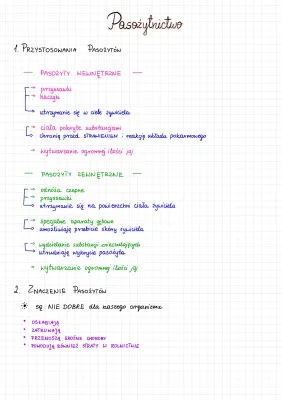 Pasożytnictwo
1. PRZYSTOSOWANIA PASOŻYTÓW
— PASOŻYTY WEWNĘTRZNE —
→ przyssawki
→ haczyki
→ utrzymanie się w ciele żywiciela
→ ciała pokryte substancjami
→ chronią przed STRAWIENIEM i reakcją układu pokarmowego
→ wytwarzanie ogromnej ilości jaj
— PASOŻYTY ZEWNĘTRZNE —
→ odnóża czepne
→ przyssawki
→ utrzymanie się na powierzchni ciała żywiciela
→ specjalne aparaty gębowe
→ umożliwiają przebicie skóry żywiciela
→ wydzielanie substancji znieczulających
→ utrudniają wykrycie pasożyta
→ wytwarzanie ogromnej ilości jaj
2. ZNACZENIE PASOŻYTÓW
* są NIE DOBRE dla naszego organizmu
* OSŁABIAJĄ
* ZATRUWAJĄ
* PRZENOSZĄ GROŹNE CHOROBY
* POWODUJĄ RÓWNIEŻ STRATY W ROLNICTWIE